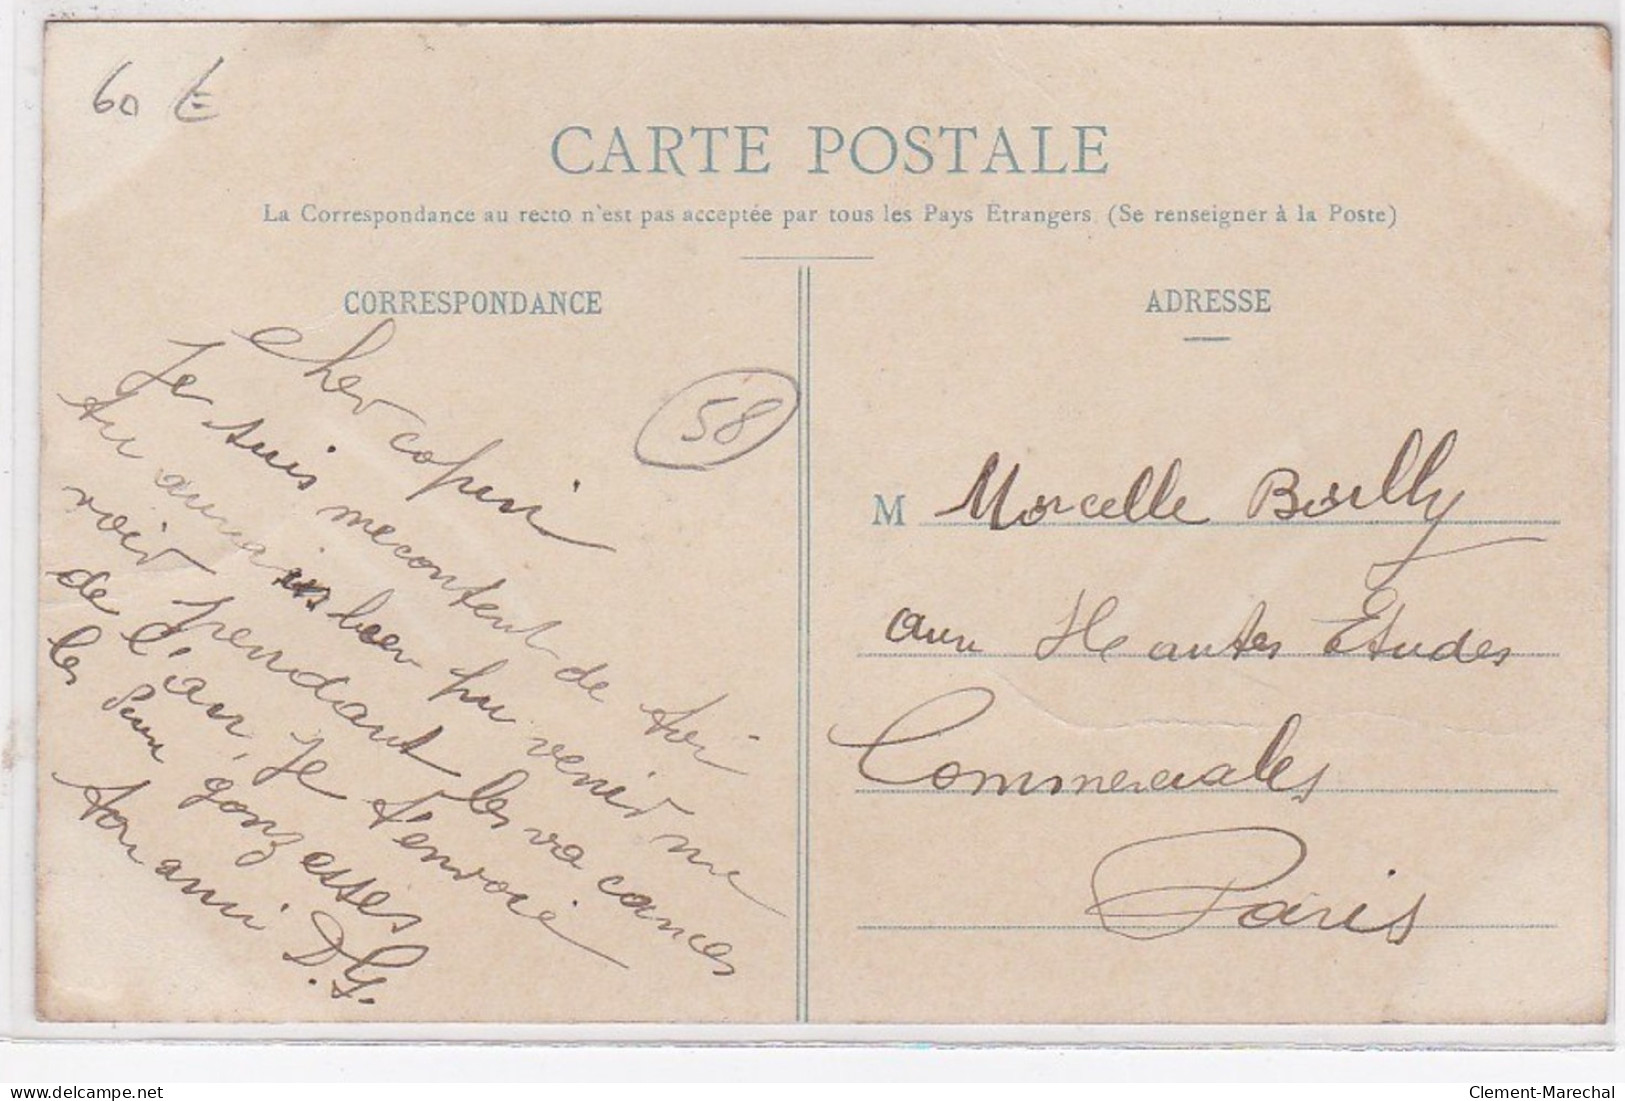 60 €
CARTE POSTALE
La Correspondance au recto n'est pas acceptée par tous les Pays Etrangers (Se renseigner à la Poste)
CORRESPONDANCE
Cher copin
Je suis mecontent de toi
tu aurais bien pu venir me
voir pendant les vacances
de l'an, Je t'envoie
les gonzesses
ton ami D.G.
58
ADRESSE
M Marcelle
aux Hautes Etudes
Commerciales
Paris
delcampe.net
Clement-Marechal